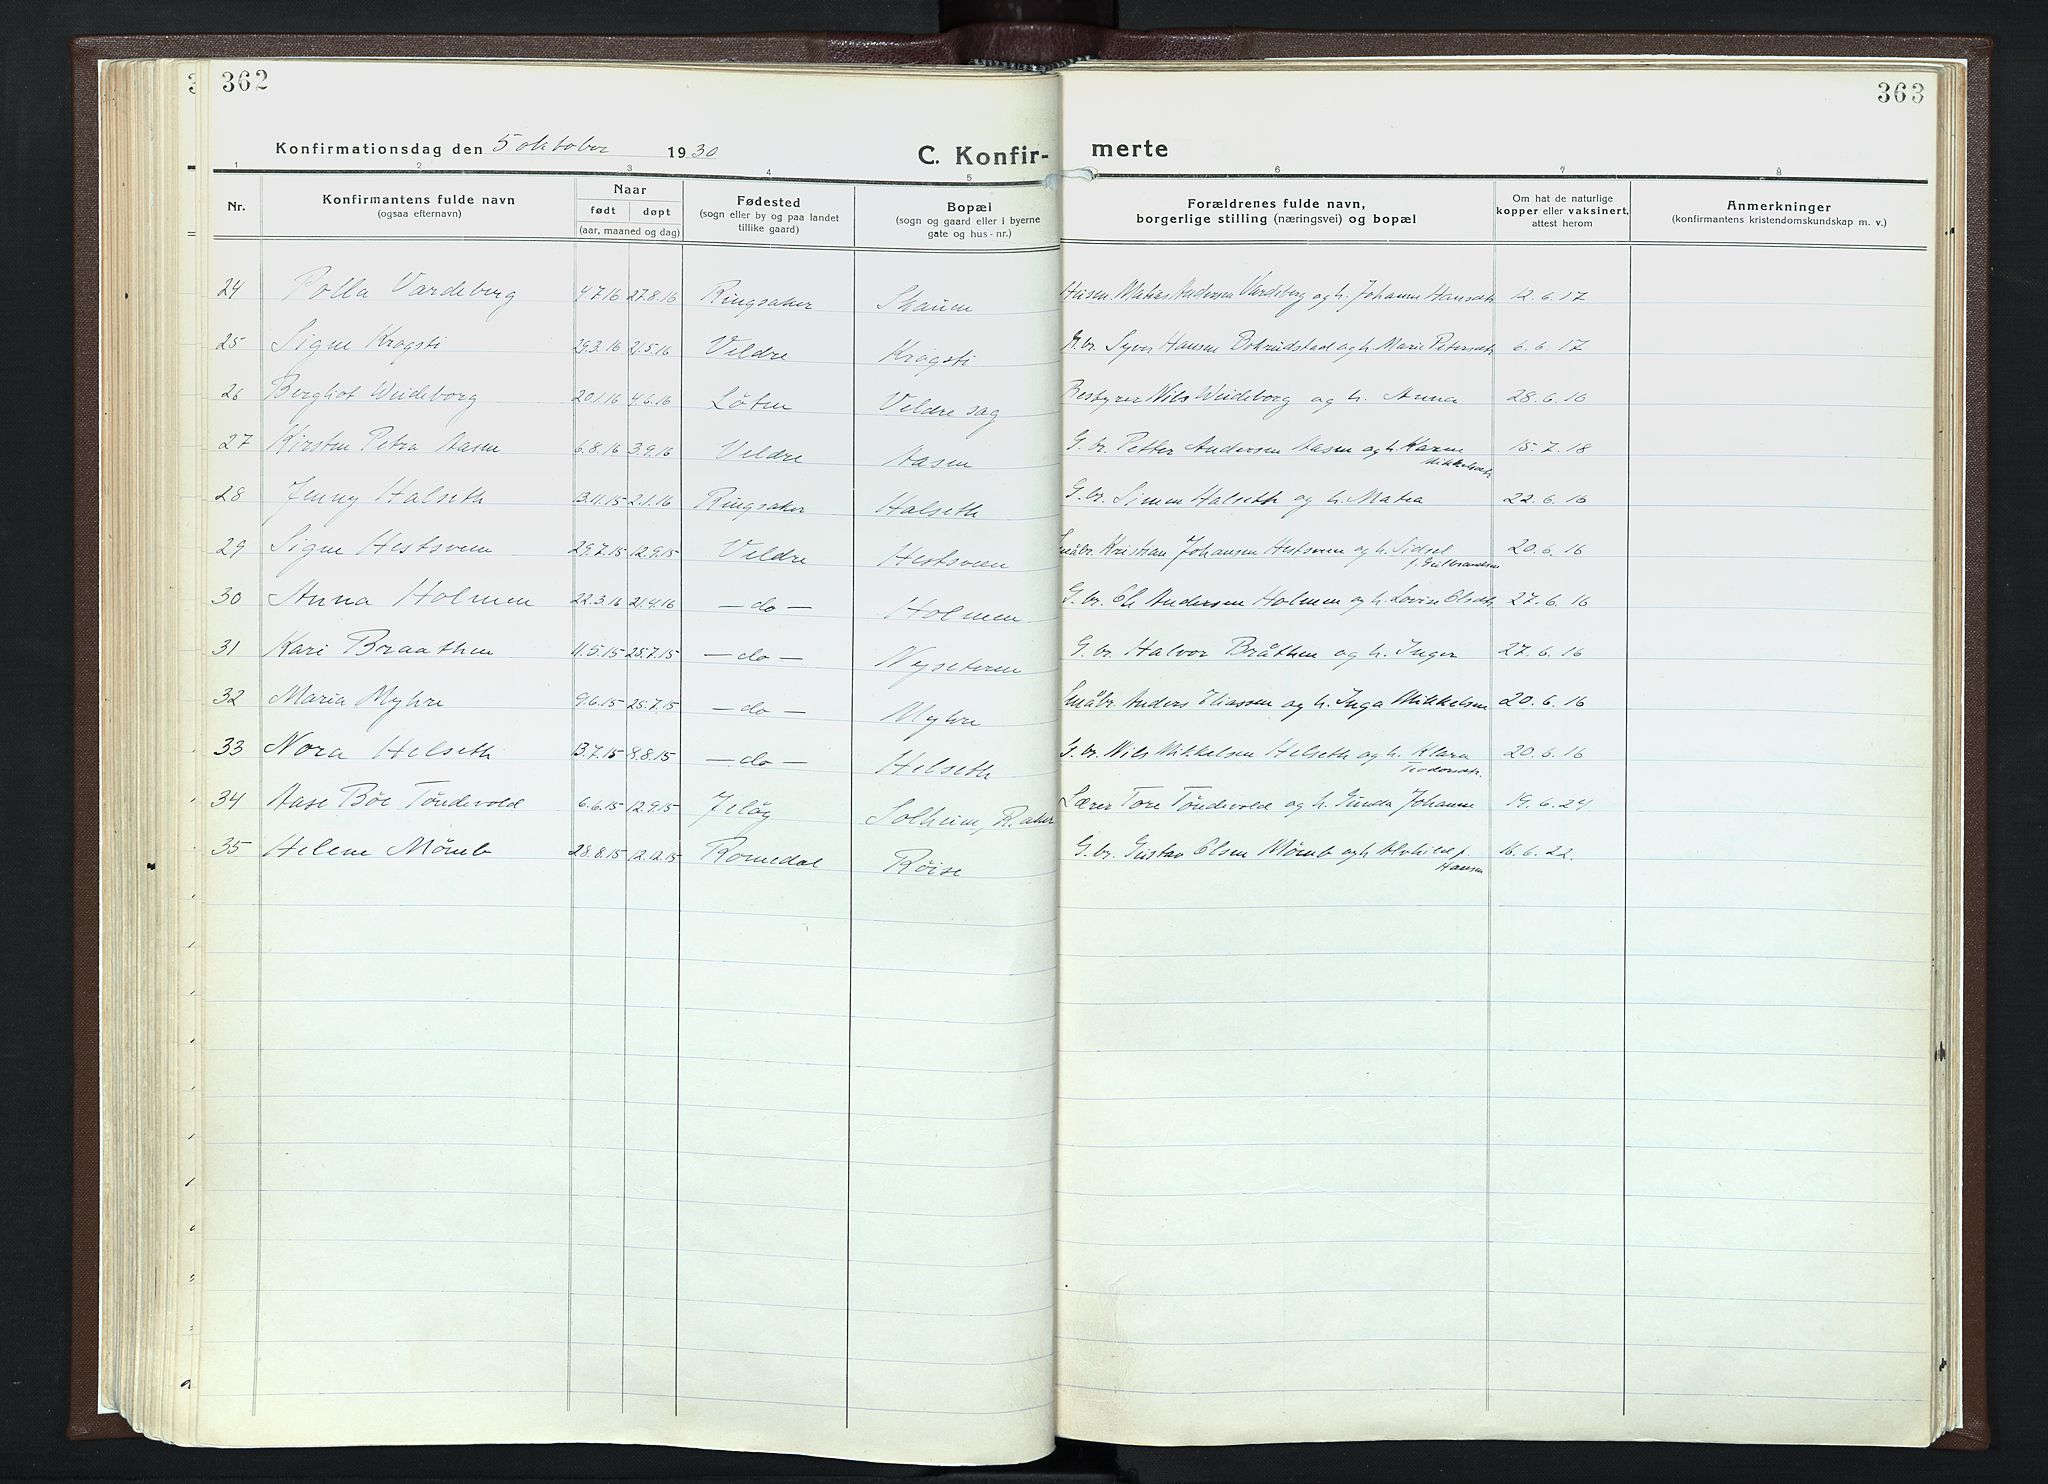 362
363
Konfirmationsdag den 5 oktober 1930
C. Konfir-
merte
1 2 3 4 5 6 7 8
Nr.
Konfirmantens fulde navn
(ogsaa efternavn)
Naar
født døpt
(aar, maaned og dag)
Fødested
(sogn eller by og paa landet
tillike gaard)
Bopæl
(sogn og gaard eller i byerne
gate og hus-nr.)
Forældrenes fulde navn,
borgerlige stilling (næringsvei) og bopæl
Om hat de naturlige
kopper eller vaksinert,
attest herom
Anmerkninger
(konfirmantens kristendomskundskap m. v.)
24 Polla Vardeberg 4.7.16 27.8.16 Ringsaker Skauen Husm. Matias Andersen Vardeberg og h. Johanne Hansdtr 12.6.17
25 Signe Krogsti 29.3.16 21.5.16 Veldre Krogsti Gr.br. Syver Hansen Bokrudstad og h. Marie Petersdtr 6.6.17
26 Bergliot Weideborg 20.1.16 4.6.16 Løten Veldre sag Bestyrer Nils Weideborg og h. Anna 28.6.16
27 Kirsten Petra Aasen 6.8.16 3.9.16 Veldre Aasen G.br. Petter Andersen Aasen og h. Karen 15.7.18
Mikkelsdtr
28 Jenny Halseth 13.11.15 2.1.16 Ringsaker Halseth G.br. Simen Halseth og h. Matea 22.6.16
29 Signe Hestsveen 29.7.15 12.9.15 Veldre Hestsveen Småbr. Kristian Johansen Hestsveen og h. Sidsel 20.6.16
f. Gulbrandsen
30 Anna Holmen 22.3.16 21.4.16 - do - Holmen G.br. Ole Andersen Holmen og h. Lovise Olsdtr 27.6.16
31 Kari Braathen 11.5.15 25.7.15 - do - Nyseteren G.br. Halvor Bråthen og h. Inger 27.6.16
32 Maria Myhre 9.6.15 25.7.15 - do - Myhre Småbr. Anders Eliassen og h. Inga Mikkelsen 20.6.16
33 Nora Helseth 13.7.15 8.8.15 - do - Helseth G.br. Nils Mikkelsen Helseth og h. Klara 20.6.16
Teodorsdtr.
34 Aase Bøe Töndevold 6.6.15 12.9.15 Jeløy Solheim, R.aker Lærer Tore Töndevold og h. Gunda Johanne 19.6.24
35 Helene Mömb 28.8.15 12.12.15 Romedal Røise G.br. Gustav Olsen Mömb og h. Alvhild f. 16.6.22.
Hansen